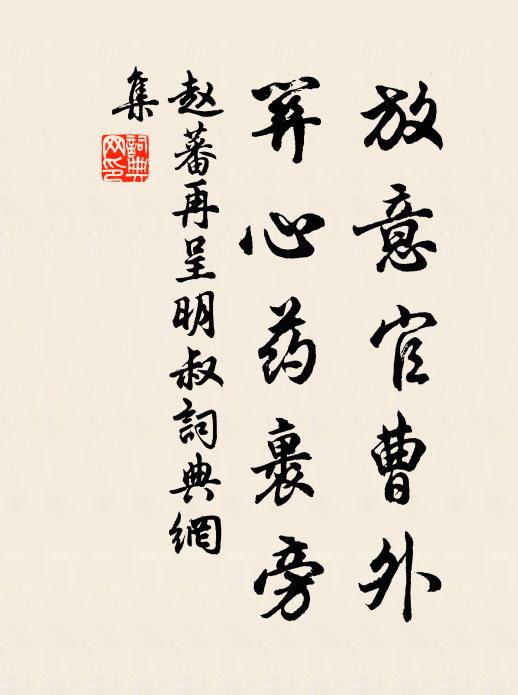 放意官曹外
关心药裹旁
赵蕃再呈明叔詞典網
集
詞典
网印